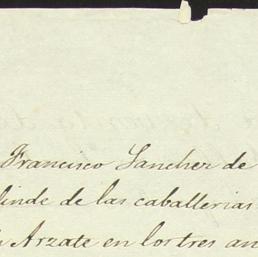 Francisco Sancher de
linde de las caballerias
Arzate en los tres an